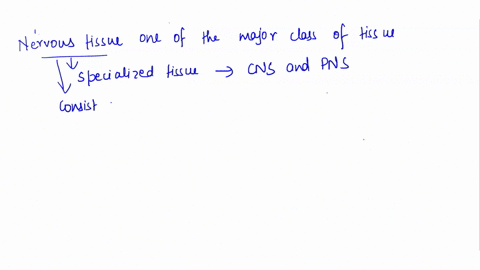 Nervous tissue one of the major class of tissue
Specialized tissue → CNS and PNS
Consist